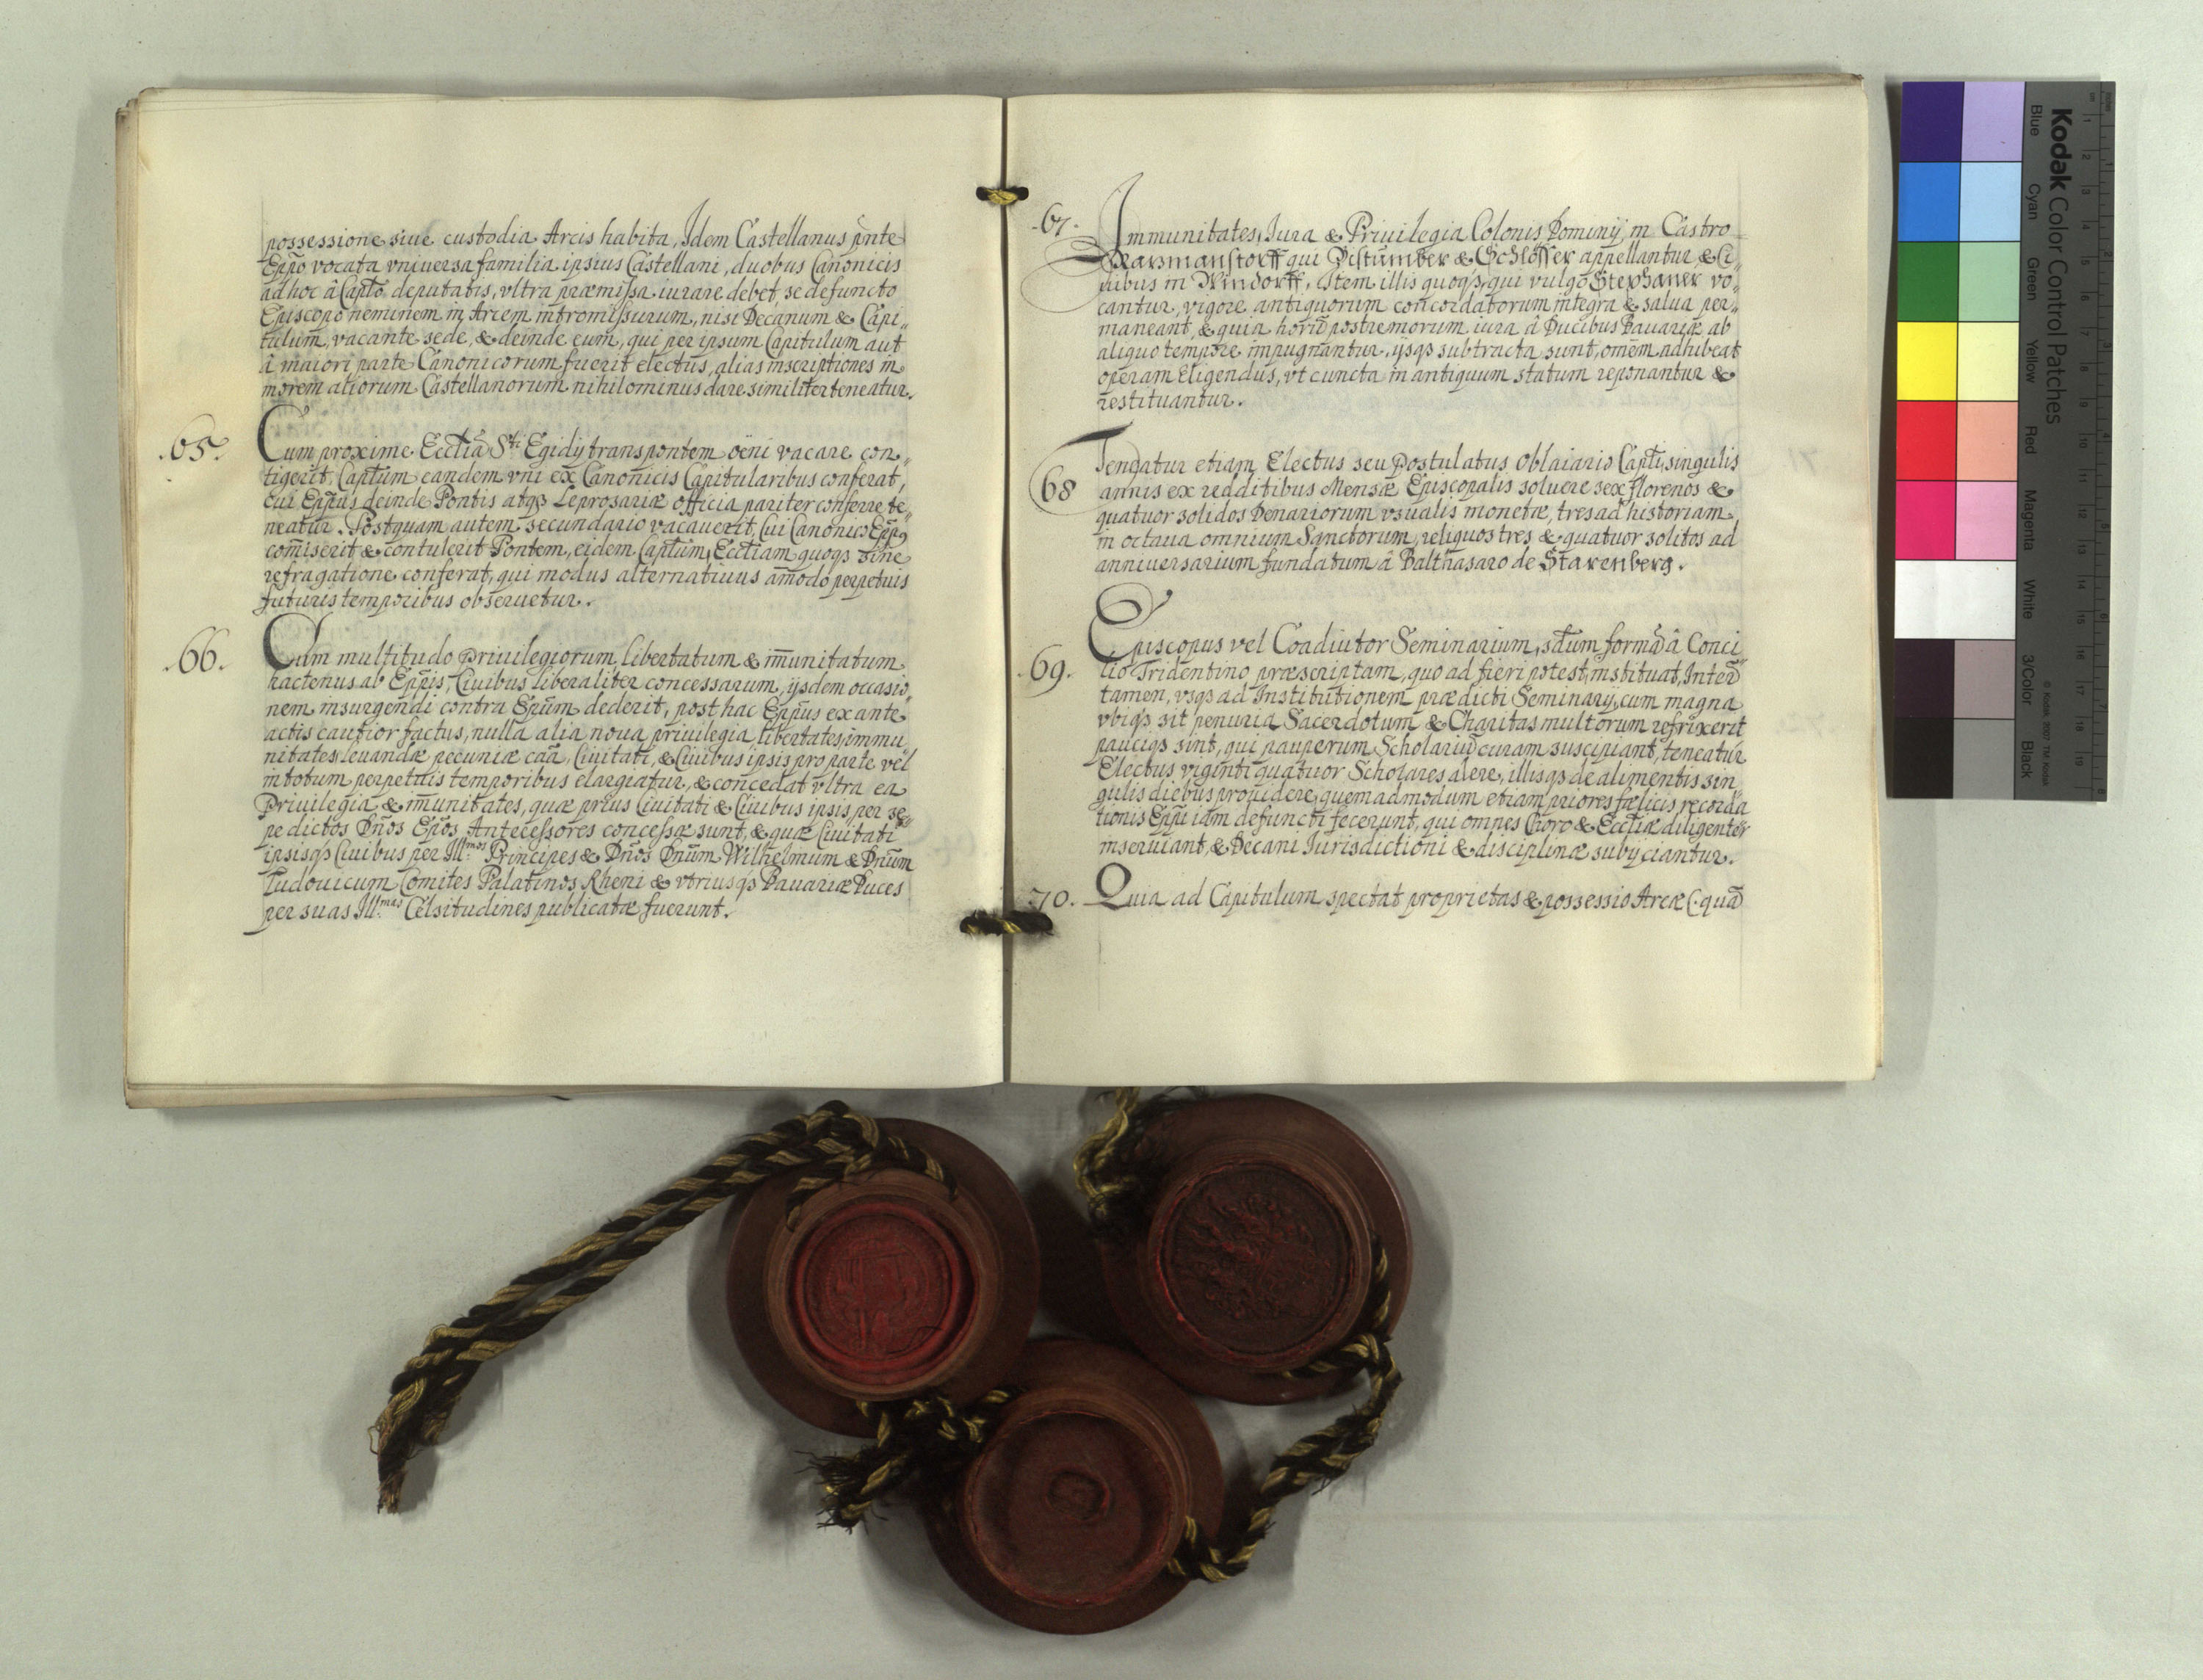 possessione siue custodia Arcis habita, Idem Castellanus p̃nte
Ep̃po vocata vniuersa familia ipsius Castellani, duobus Canonicis
ad hoc â Capl̃o deputatis, vltra præmissa iurare debet, se defuncto
Episcopo neminem in Arcem intromissurum, nisi Decanum & Capi„
tulum, vacante sede, & deinde eum, qui per ipsum Capitulum aut
â maiori parte Canonicorum fuerit electus, alias inscriptiones in
morem aliorum Castellanorum nihilominus dare similiter teneatur.
.65.
Cum proxime Eccl̃ia S.ti Egidij trans pontem oẽni vacare con„
tigerit, Capl̃um eandem vni ex Canonicis Capitularibus conferat,
cui Ep̃pus deinde Pontis atqꝫ Leprosariæ officia pariter conferre te„
neatur. Postquam autem secundario vacauerit, Cui Canonico Ep̃pus
com̃iserit & contulerit Pontem, eidem Capl̃um, Eccl̃iam quoqꝫ sine
refragatione conferat, qui modus alternatiuus am̃odo perpetuis
futuris temporibus obseruetur.
.66.
Cum multitudo Priuilegiorum, libertatum & im̃unitatum
hactenus ab Ep̃pis, Ciuibus liberaliter concessarum, ijsdem occasio„
nem insurgendi contra Ep̃um dederit, post hac Ep̃pus ex ante
actis cautior factus, nulla alia noua priuilegia libertates, immu„
nitates, leuandæ pecuniæ cãa, Ciuitati, & Ciuibus ipsis pro parte vel
in totum perpetuis temporibus elargiatur, & concedat vltra ea
Priuilegia & im̃unitates, quæ prius Ciuitati & Ciuibus ipsis, per sæ„
pe dictos Dños Ep̃os Antecessores concessæ sunt, & quæ Ciuitati
ipsisqꝫ Ciuibus per Ill.mos Principes & Dños Dñum Wilhelmum & Dñum
Ludouicum Comites Palatinos Rheni & vtriusqꝫ Bauariæ Duces
per suas Ill.mas Celsitudines publicatæ fuerunt.
.67.
Immunitates, Iura & Priuilegia Colonis Dominij, in Castro
qui & Schlösser appellantur & Ci„
uibus in Windorff, Item illis quoqꝫ, qui vulgo Stephaner vo„
cantur, vigore antiquorum concordatorum integra & salua per„
maneant, & quia horũ postremorum iura â Ducibus Bauariæ ab
aliquo tempore impugnantur, ijsqꝫ subtracta sunt, om̃em adhibeat
operam Eligendus, vt cuncta in antiquum statum reponantur &
restituantur.
68
Teneatur etiam Electus seu Postulatus Oblaiario Capl̃i, singulis
annis ex redditibus Mensæ Episcopalis soluere sex florenos &
quatuor solidos Denariorum vsualis monetæ, tres ad historiam
in octaua omnium Sanctorum, reliquos tres & quatuor solitos ad
anniuersarium fundatum â Balthasaro de Starenberg.
.69.
Episcopus vel Coadiutor Seminarium, s̃dum formã â Conci„
lio Tridentino præscriptam, quo ad fieri potest, instituat, Interẽa
tamen, vsqꝫ ad Institutionem prædicti Seminarij, cum magna
vbiqꝫ sit penuria Sacerdotum & Charitas multorum refrixerit
paucisqꝫ sint, qui pauperum Scholariũ curam suscipiant, teneatur
Electus viginti quatuor Scholares alere, illisqꝫ de alimentis sin„
gulis diebus prouidere, quemadmodum etiam priores fælicis recorda„
tionis Ep̃pi iam defuncti fecerunt, qui omnes Choro & Eccl̃iæ diligenter
inseruiant, & Decani Iurisdictioni & disciplinæ subijciantur.
.70.
Quia ad Capitulum spectat proprietas & possessio Arcæ (quã
Kodak Color Control Patches
Blue Cyan Green Yellow Red Magenta White 3/Color Black
© Kodak 2007 TM: Kodak